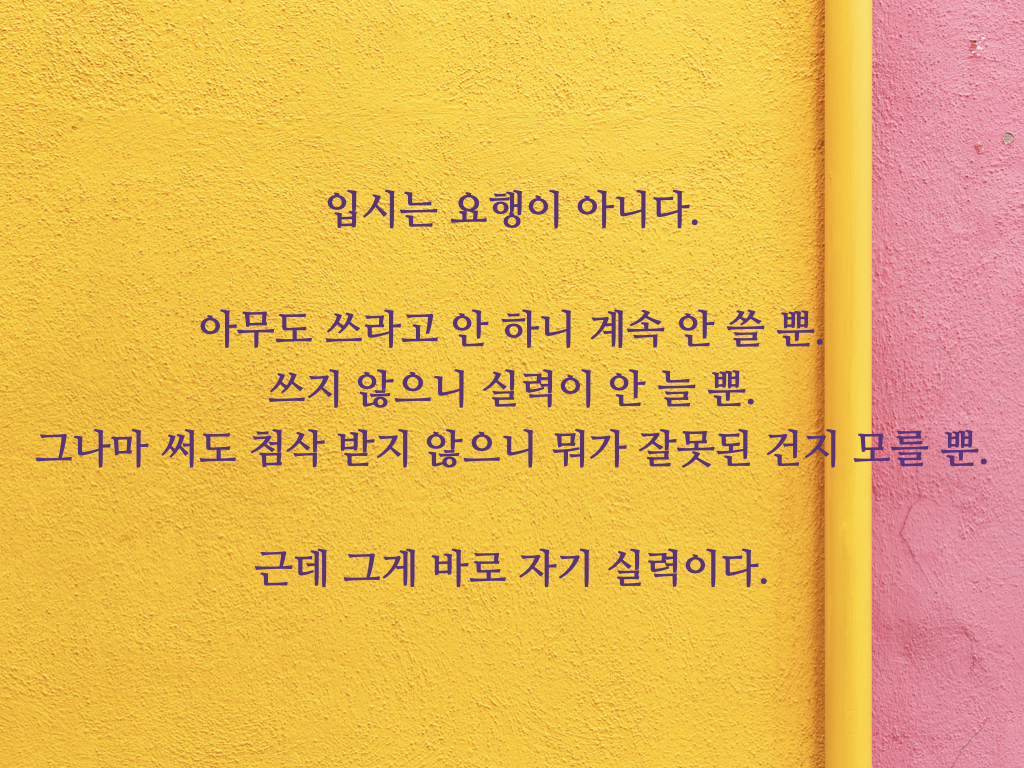 입시는 요행이 아니다.
아무도 쓰라고 안 하니 계속 안 쓸 뿐.
쓰지 않으니 실력이 안 늘 뿐.
그나마 써도 첨삭 받지 않으니 뭐가 잘못된 건지 모를 뿐.
근데 그게 바로 자기 실력이다.